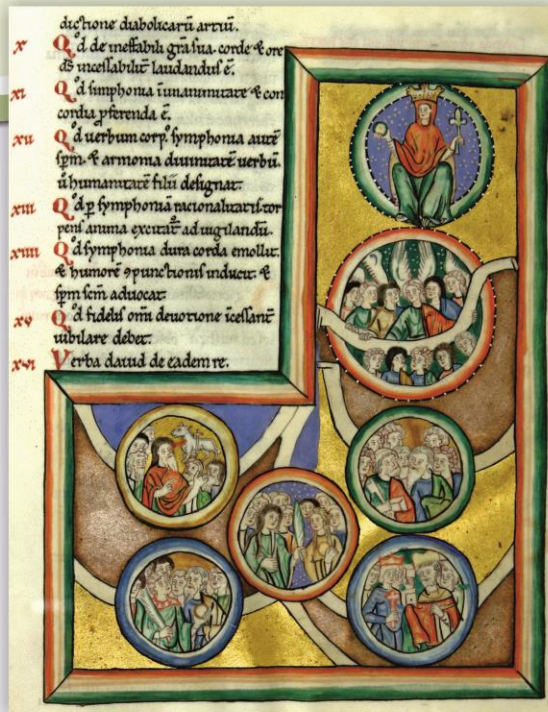 dictione diabolicarū artiū.
x Qd de ineffabili gr̄a sua. corde & ore
ds̄ incessabilit̄ laudandus ē.
xi Qd simphonia ī unanimitate & con
cordia p̄ferenda ē.
xii Qd uerbum corp'. symphonia aūte
sp̄m. & armonia diuinitatē. uerbū.
ū humanitatē filii designat.
xiii Qd p̄ symphoniā racionalitatis tor
pens anima excitat' ad uigilandū.
xiiii Qd symphonia dura corda emollit.
& humorē 9punctionis inducit. &
sp̄m sc̄m aduocat.
xv Qd fidelis om̄i deuotione īcessant̄
iubilare debet.
xvi Verba dauid de eadem re.